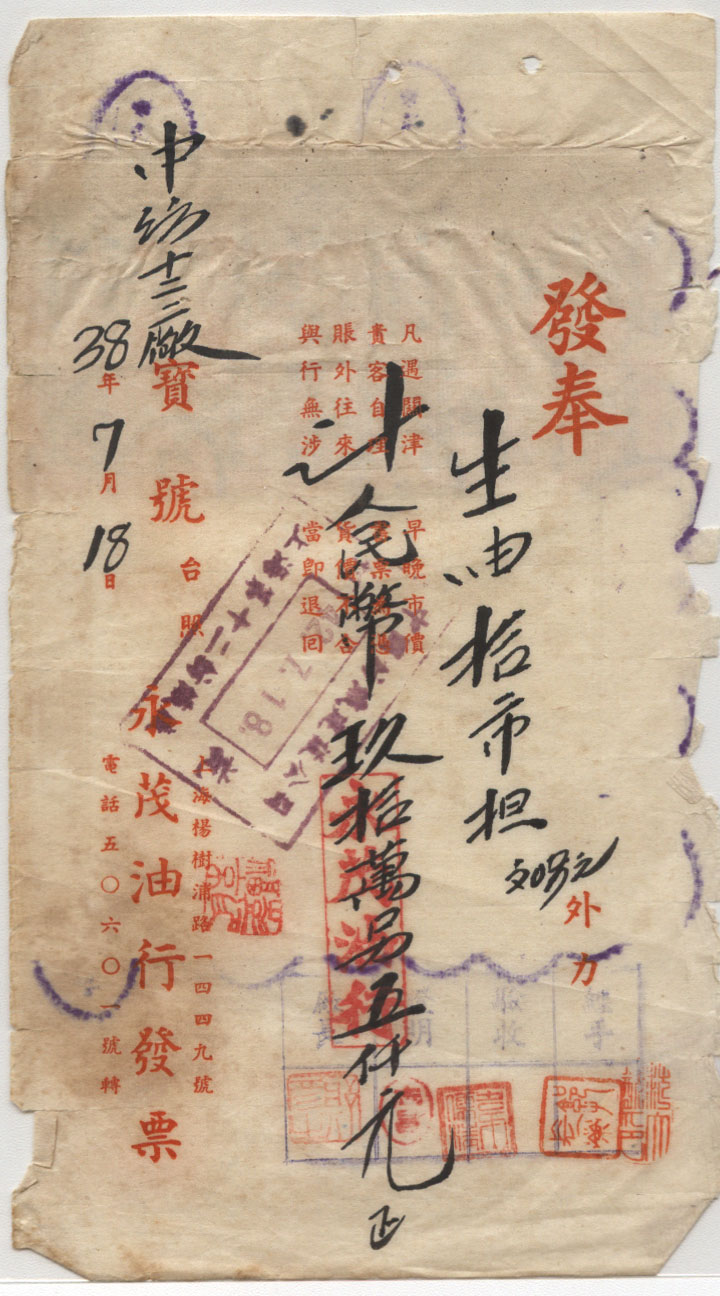 發奉
生油拾市担
外力
計人民幣玖拾萬另五仟元正
凡遇關津
貴客自理
賬外往來
與行無涉
早晚市價
貨價不合
當即退回
永茂油行
中紡十二廠
寶號台照
38年7月18日
7.18.
上海楊樹浦路一四四九號
永茂油行發票
電話五〇六〇一號轉
經手
驗收
證明